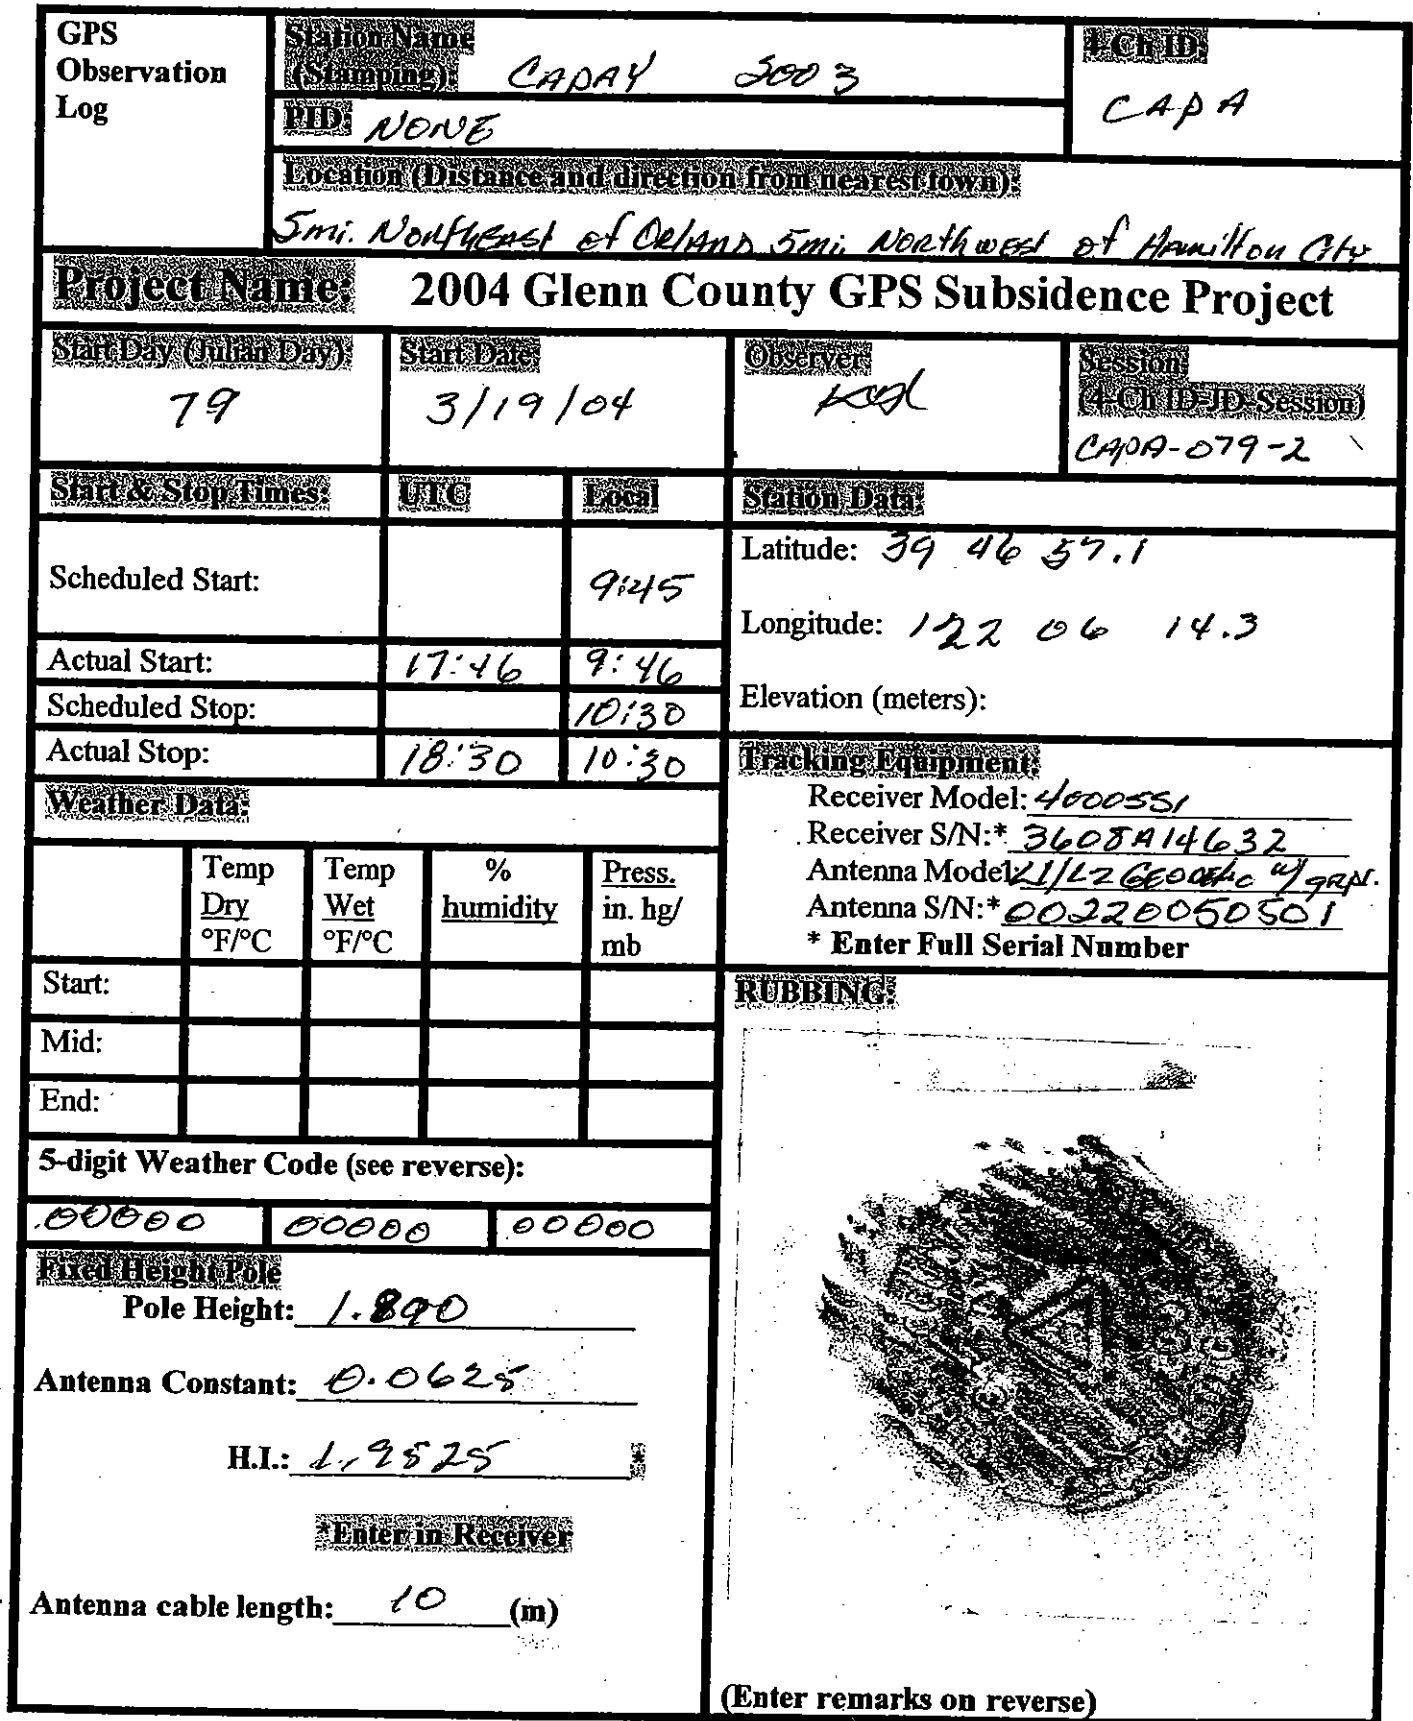 GPS Observation Log
Station Name (Stamping): CAPAY 2003
4-Ch ID: CAPA
PID: NONE
Location (Distance and direction from nearest town):
5mi. Northeast of Orland 5mi. Northwest of Hamilton City
Project Name: 2004 Glenn County GPS Subsidence Project
Start Day (Julian Day): 79
Start Date: 3/19/04
Observer:
Session: (4-Ch ID-JD-Session)
CAPA-079-2
Start & Stop Times: UTC Local
Scheduled Start: 9:45
Actual Start: 17:46 9:46
Scheduled Stop: 10:30
Actual Stop: 18:30 10:30
Station Data:
Latitude: 39 46 57.1
Longitude: 122 06 14.3
Elevation (meters):
Tracking Equipment:
Receiver Model: 4000SSI
Receiver S/N:* 3608A14632
Antenna Model: L1/L2 Geodetic w/ grpl.
Antenna S/N:* 00220050501
* Enter Full Serial Number
Weather Data:
Temp Dry °F/°C
Temp Wet °F/°C
% humidity
Press. in. hg/ mb
Start:
Mid:
End:
5-digit Weather Code (see reverse):
00000 00000 00000
Fixed Height Pole
Pole Height: 1.890
Antenna Constant: 0.0625
H.I.: 1.9525 *
*Enter in Receiver
Antenna cable length: 10 (m)
RUBBING:
(Enter remarks on reverse)